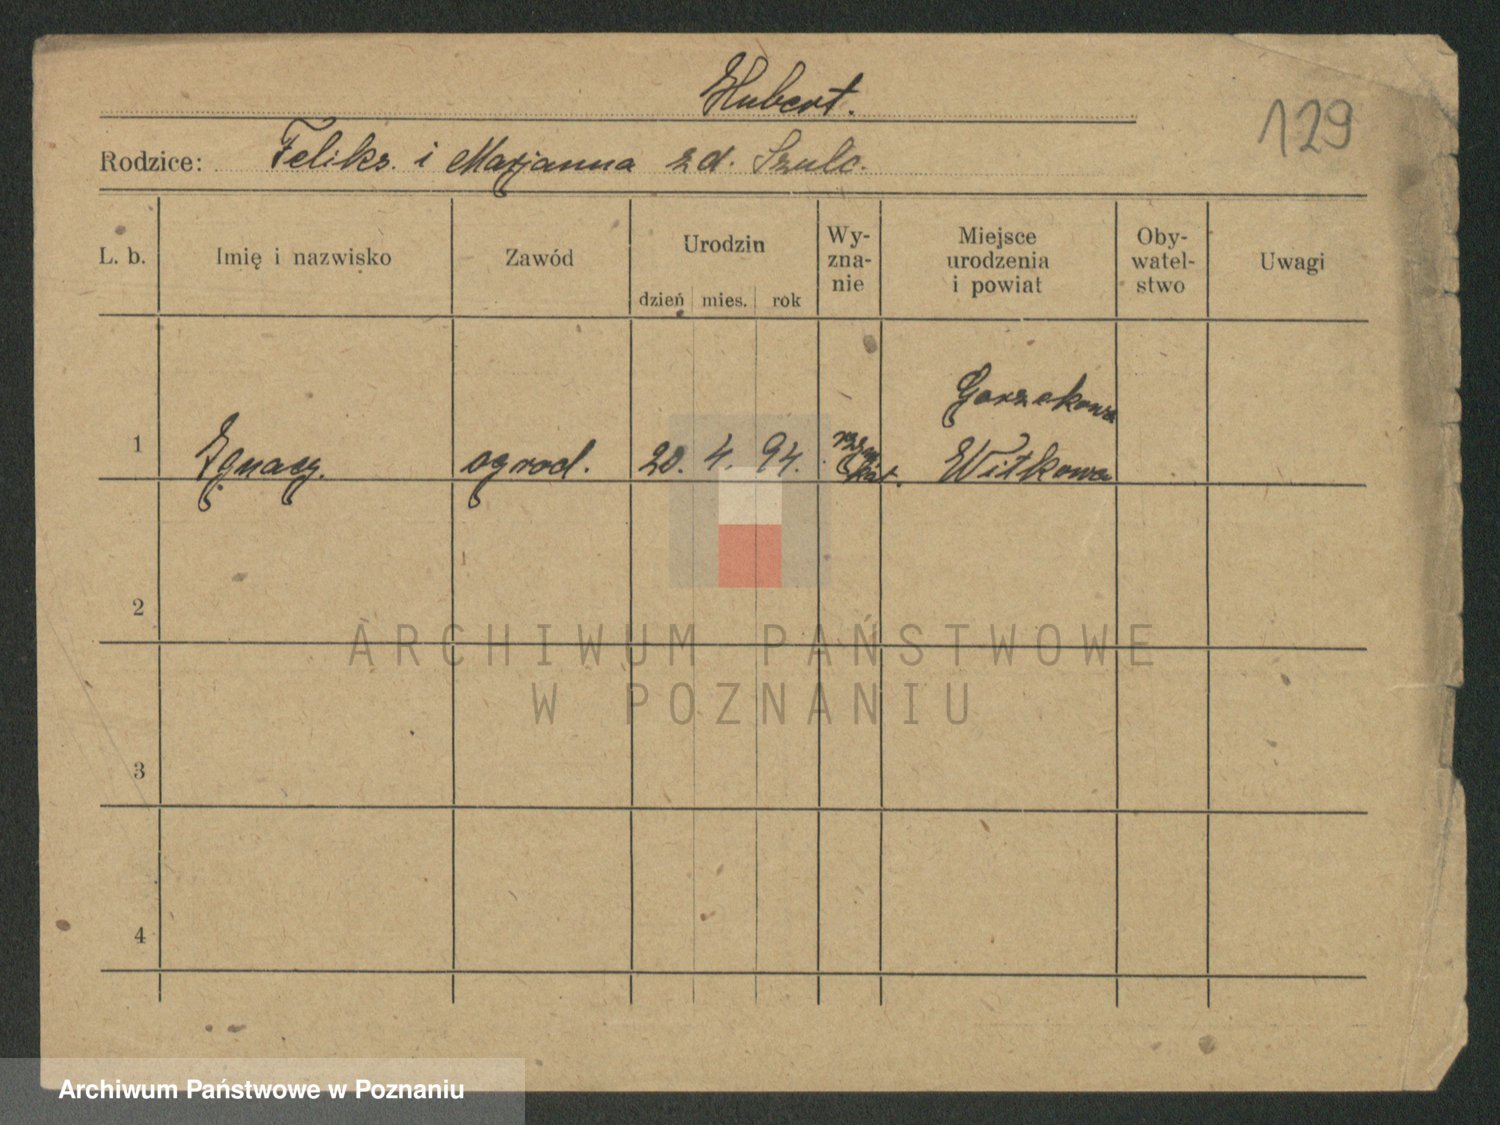 Hubert.
129
Rodzice: Feliks i Marjanna zd. Szulc.
L. b. Imię i nazwisko Zawód Urodzin dzień mies. rok Wy-zna-nie Miejsce urodzenia i powiat Oby-watel-stwo Uwagi
Gorzakowa
1 Ignacy. ogrod. 20. 4. 94. rzym kat. Witkowa
2
ARCHIWUM PAŃSTWOWE
W POZNANIU
3
4
Archiwum Państwowe w Poznaniu